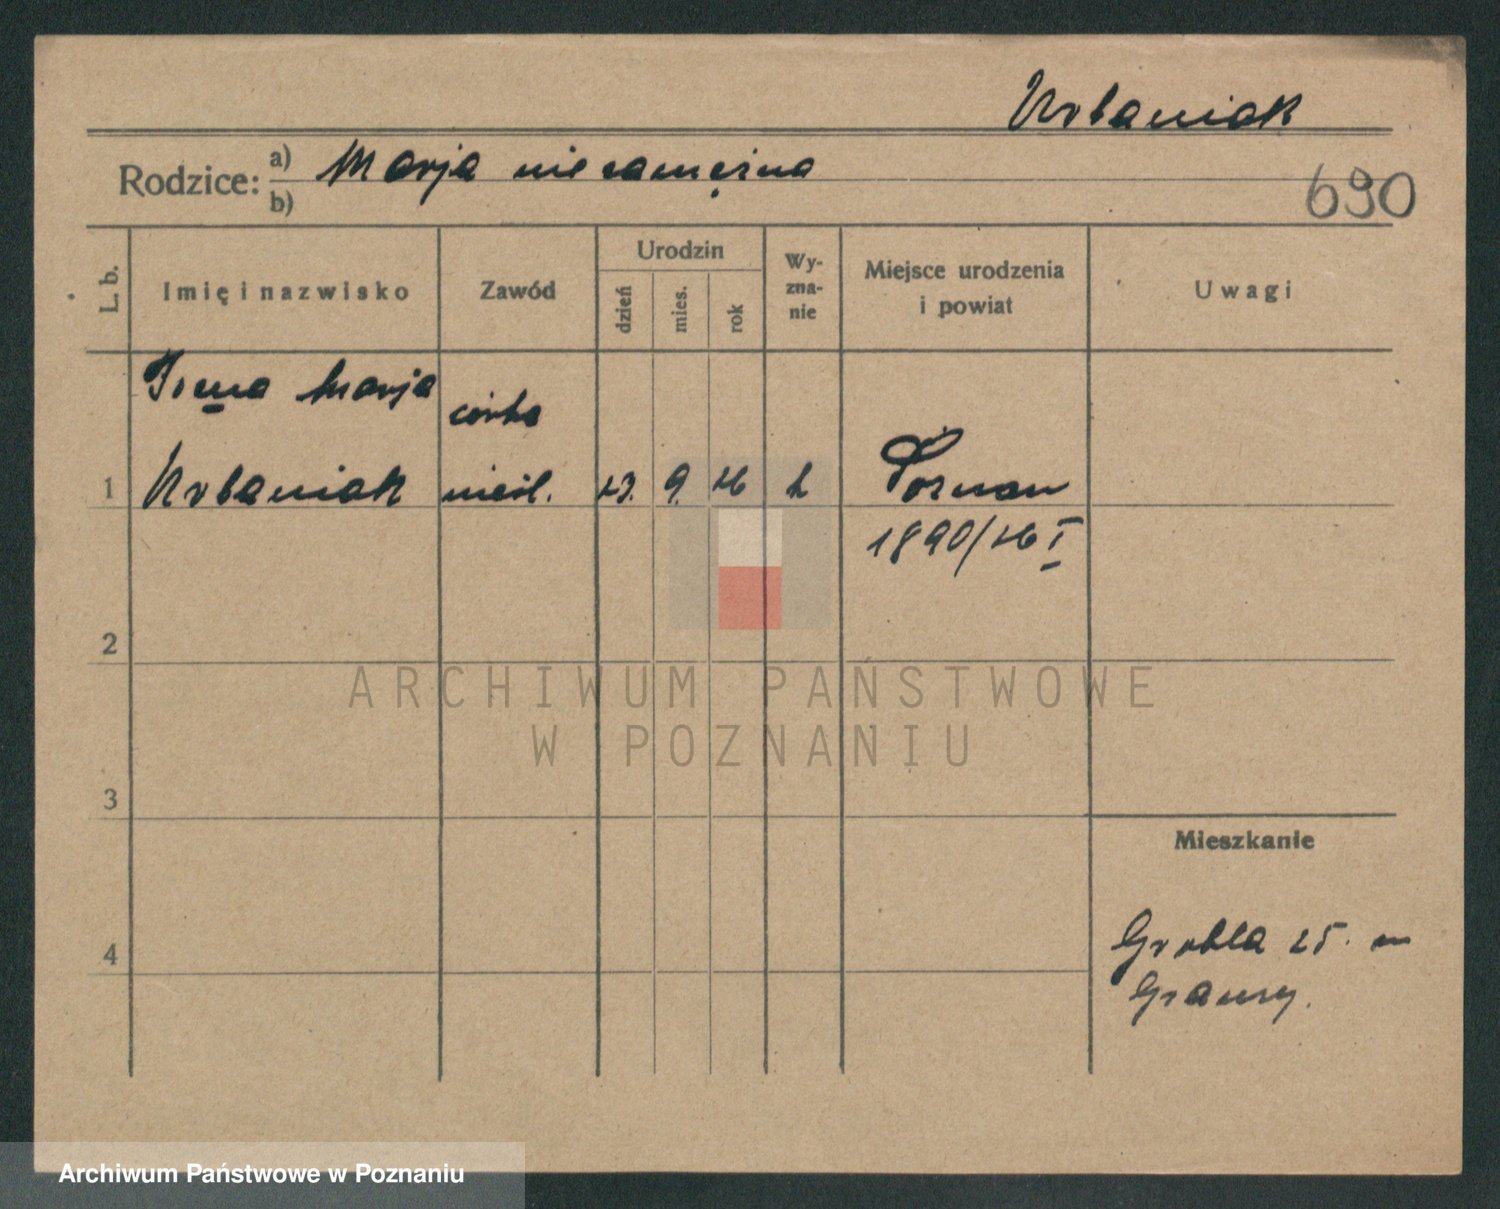 Urbaniak
Rodzice: a) Marja niezamężna
b)
690
L. b.
Imię i nazwisko
Zawód
Urodzin
dzień
mies.
rok
Wy-
zna-
nie
Miejsce urodzenia
i powiat
Uwagi
Irena Marja
córka
1 Urbaniak nieśl. 23. 9. 26 k Poznań
1890/26 I
2
3
4
Mieszkanie
Grobla 25. m
ARCHIWUM PAŃSTWOWE
W POZNANIU
Archiwum Państwowe w Poznaniu